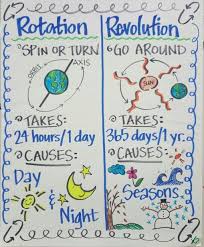 Rotation
SPIN OR TURN
ORBIT
AXIS
TAKES:
24 hours/1 day
CAUSES:
Day
&
Night
Revolution
GO AROUND
SUN
TAKES:
365 days/1 yr.
CAUSES:
Seasons